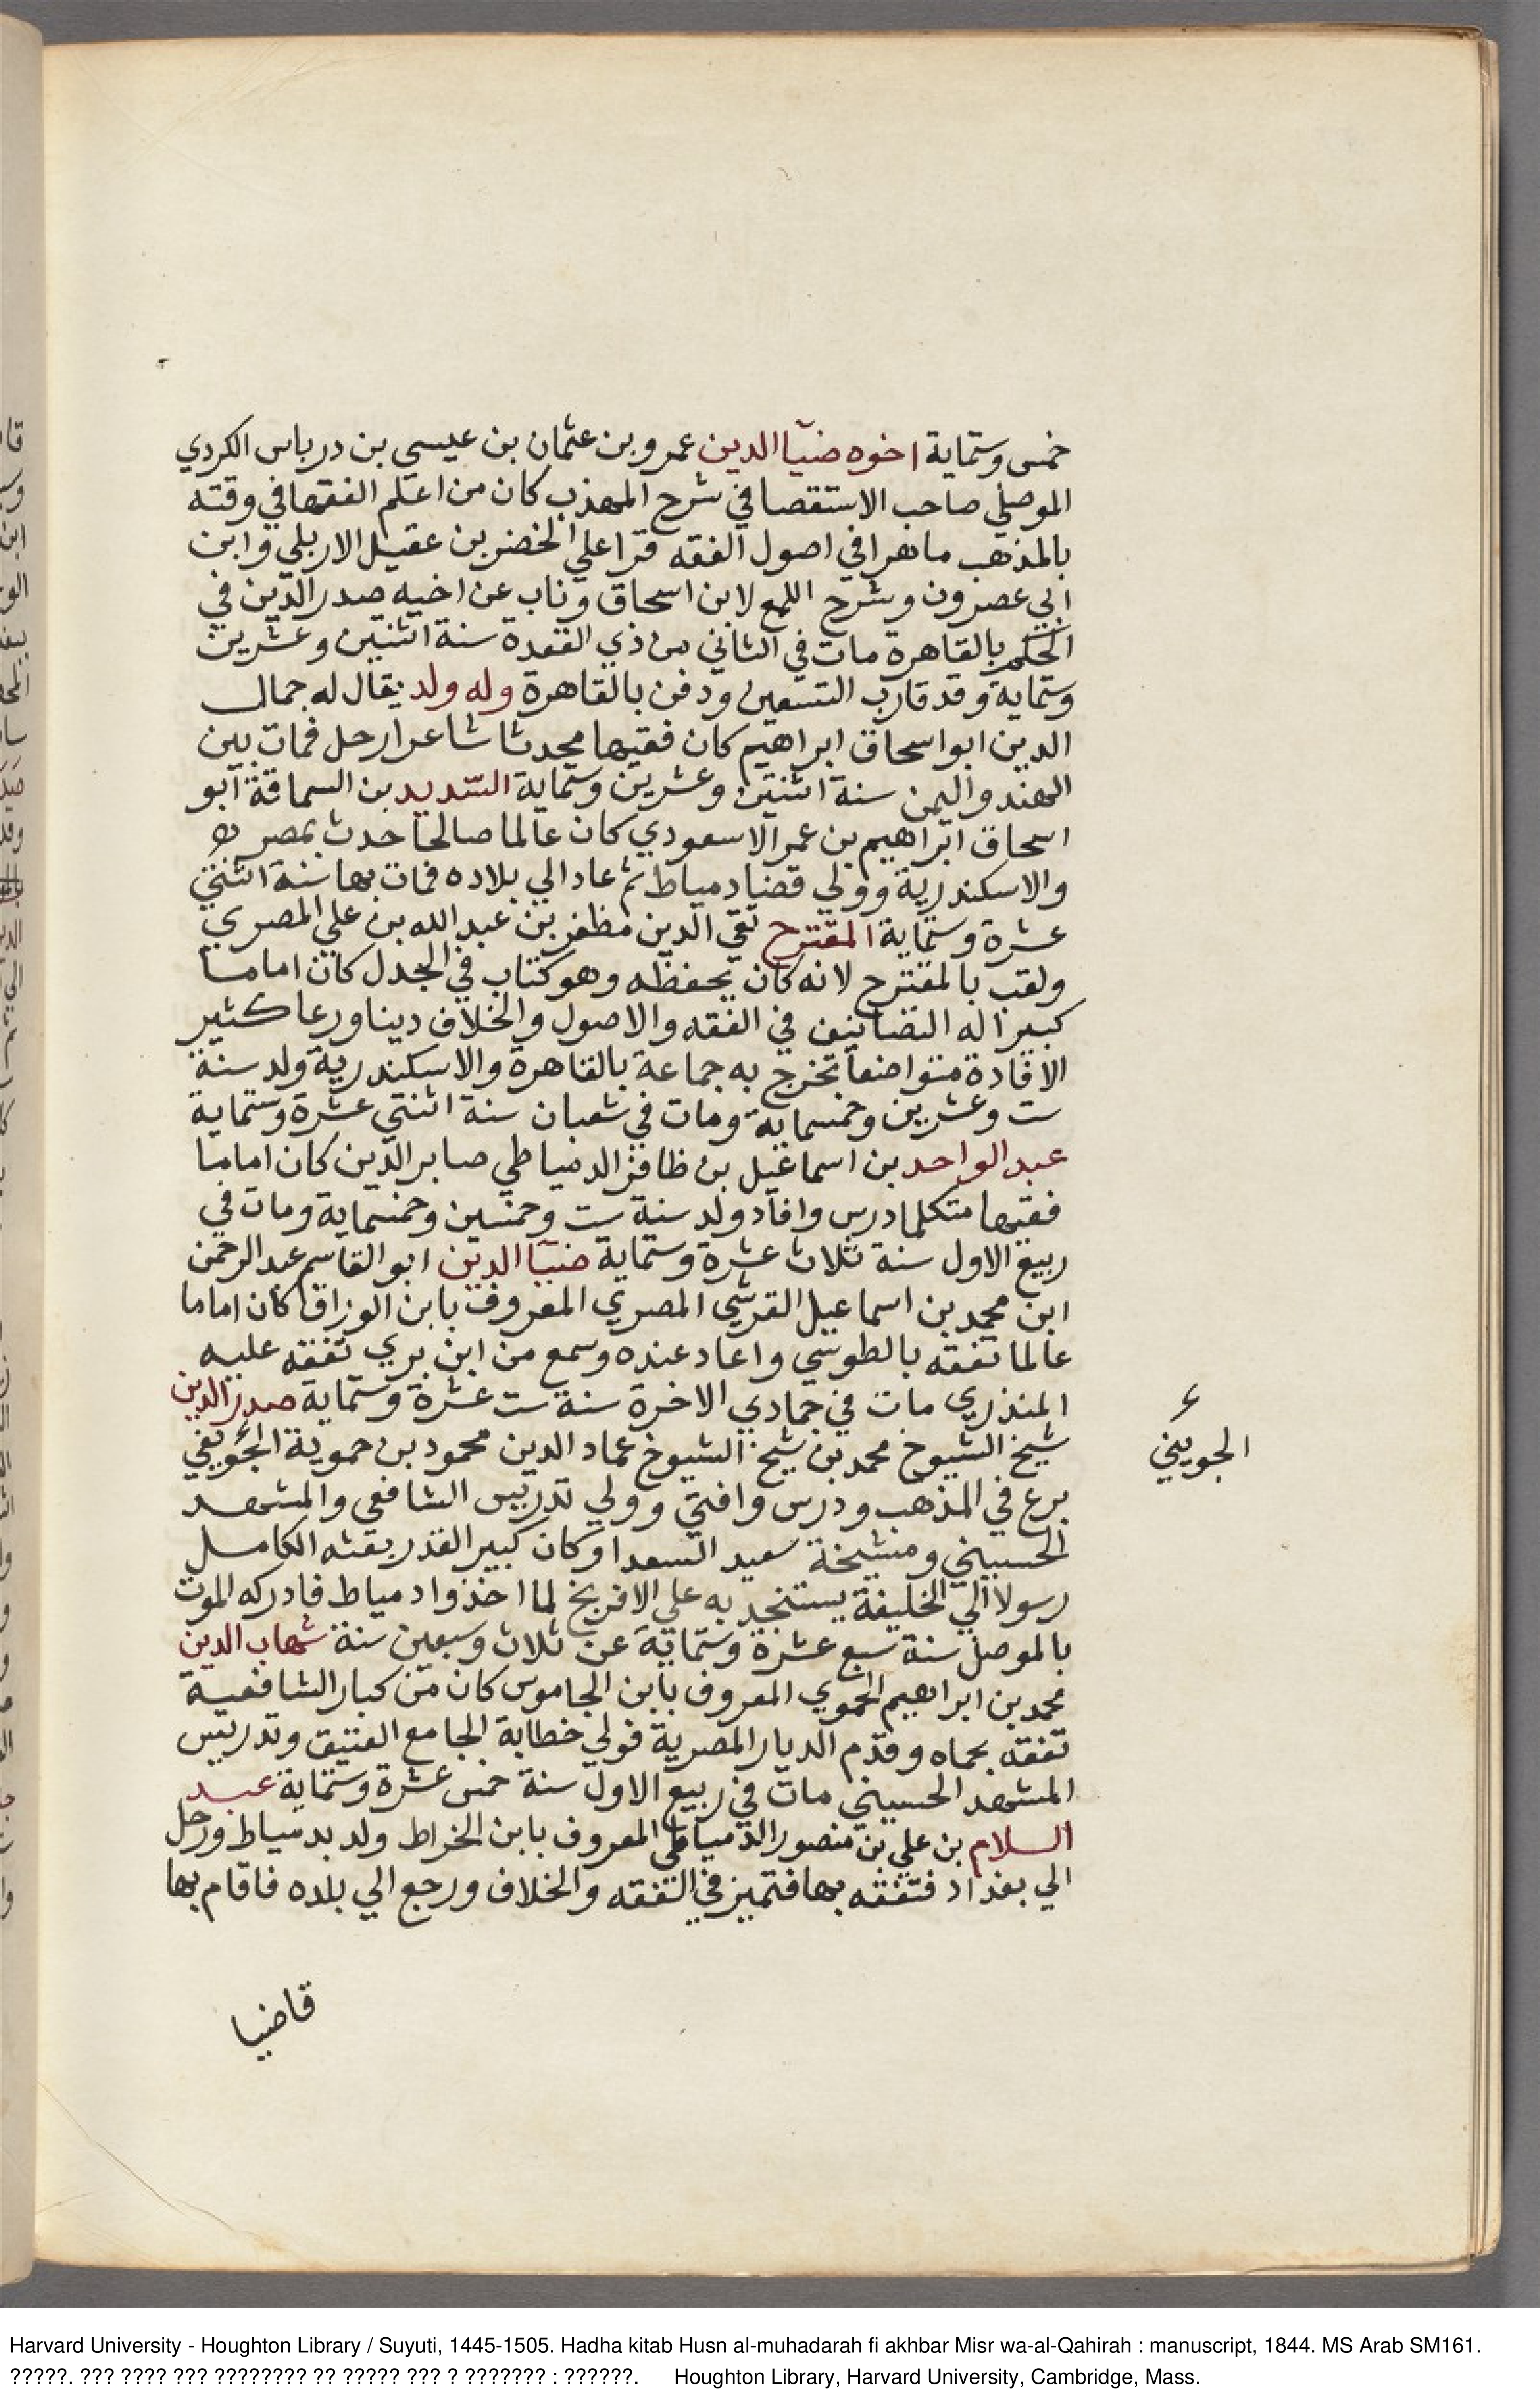 خمس وستماية اخوه ضيآ الدين عمرو بن عثمان بن عيسي بن درباس الكردي
الموصلي صاحب الاستقصا في شرح المهذب كان من اعلم الفقها في وقته
بالمذهب ماهرا في اصول الفقه قرا علي الخضر بن عقيل الاربلي وابن
ابي عصرون وشرح اللمع لابن اسحاق وناب عن اخيه صدر الدين في
الحكم بالقاهرة مات في الثاني من ذي القعدة سنة اثنين وعشرين
وستماية وقد قارب التسعين ودفن بالقاهرة وله ولد يقال له جمال
الدين ابو اسحاق ابراهيم كان فقيها محدثا شاعرا رحل فمات بين
الهند واليمن سنة اثنتين وعشرين وستماية السديد بن السماقة ابو
اسحاق ابراهيم بن عمر الاسعودي كان عالما صالحا حدث بمصر
والاسكندرية وولي قضا دمياط ثم عاد الي بلاده فمات بها سنة اثنتي
عشرة وستماية المقترح تقي الدين مظفر بن عبد الله بن علي المصري
ولقب بالمقترح لانه كان يحفظه وهو كتاب في الجدل كان اماما
كبيرا له التصانيف في الفقه والاصول والخلاف دينا ورعا كثير
الافادة متواضعا تخرج به جماعة بالقاهرة والاسكندرية ولد سنة
ست وعشرين وخمسماية ومات في شعبان سنة اثنتي عشرة وستماية
عبد الواحد بن اسماعيل بن ظافر الدمياطي صابر الدين كان اماما
فقيها متكلما درس وافاد ولد سنة ست وخمسين وخمسماية ومات في
ربيع الاول سنة ثلاث عشرة وستماية ضيآ الدين ابو القاسم عبد الرحمن
ابن محمد بن اسماعيل القرشي المصري المعروف بابن الوزاق كان اماما
عالما تفقه بالطوسي واعاد عنده وسمع من ابن بري تفقه عليه
المنذري مات في جمادي الاخرة سنة ست عشرة وستماية صدر الدين
شيخ الشيوخ محمد بن شيخ الشيوخ عماد الدين محمود بن حموية الجويفي
ء
الجويني
برع في المذهب ودرس وافتي وولي تدريس الشافعي والمشهد
الحسيني ومشيخة سعيد السعدا وكان كبير القدر بعثه الكامل
رسولا الي الخليفة يستنجد به علي الافرنج لما اخذوا دمياط فادركه الموت
بالموصل سنة سبع عشرة وستماية عن ثلاث وسبعين سنة شهاب الدين
محمد بن ابراهيم الحموي المعروف بابن الجاموس كان من كبار الشافعية
تفقه بحماه وقدم الديار المصرية فولي خطابة الجامع العتيق وتدريس
المشهد الحسيني مات في ربيع الاول سنة خمس عشرة وستماية عبد
السلام بن علي بن منصور الدمياطي المعروف بابن الخراط ولد بدمياط ورحل
الي بغداد فتفقه بها فتميز في التفقه والخلاف ورجع الي بلده فاقام بها
قاضيا
Harvard University - Houghton Library / Suyuti, 1445-1505. Hadha kitab Husn al-muhadarah fi akhbar Misr wa-al-Qahirah : manuscript, 1844. MS Arab SM161.
?????. ??? ???? ??? ???????? ?? ????? ??? ? ??????? : ??????. Houghton Library, Harvard University, Cambridge, Mass.